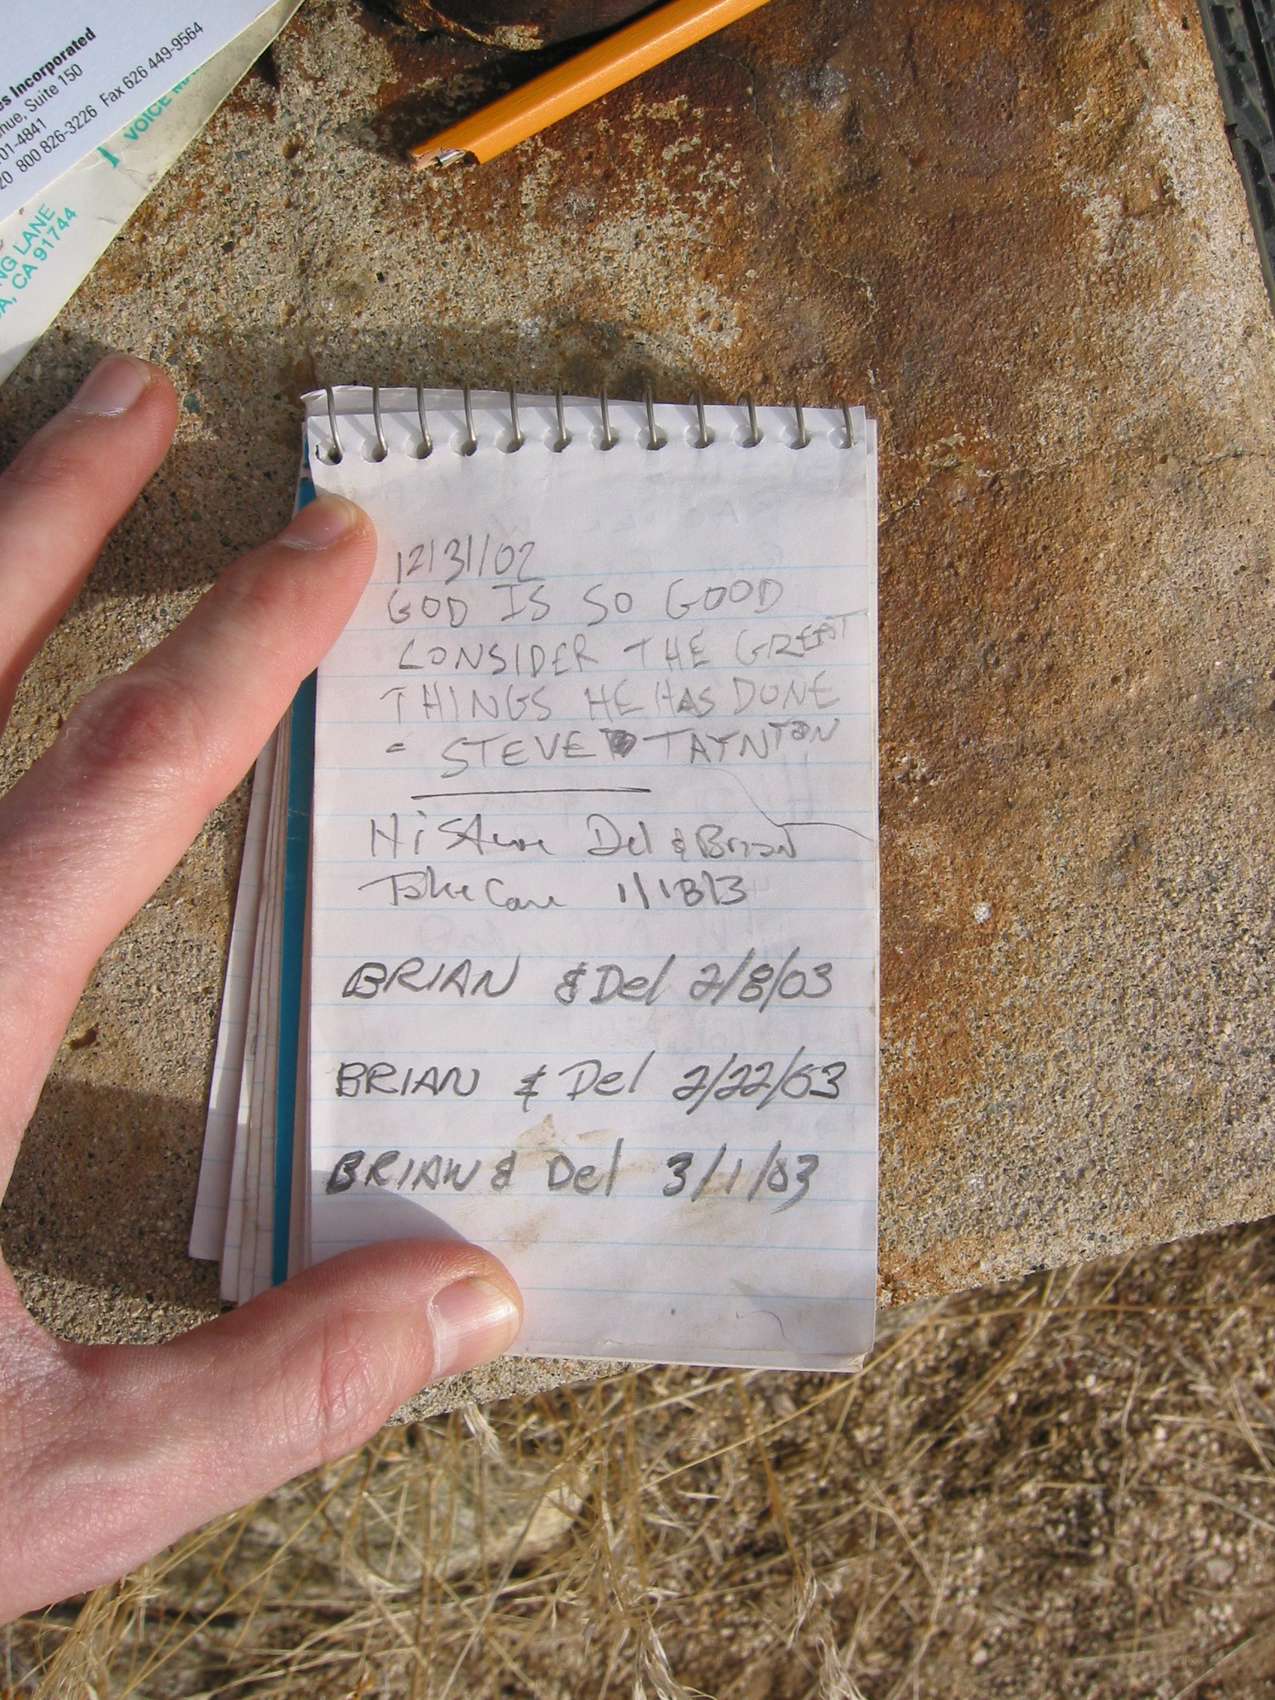 es Incorporated
nue, Suite 150
01-4841
20 800 826-3226 Fax 626 449-9564
VOICE
NG LANE
A, CA 91744
12/31/02
GOD IS SO GOOD
CONSIDER THE GREAT
THINGS HE HAS DONE
- STEVE TAYNTON
Hi Steve Del & Brian
Take Care 1/18/3
BRIAN & Del 2/8/03
BRIAN & Del 2/22/03
BRIAN & Del 3/1/03